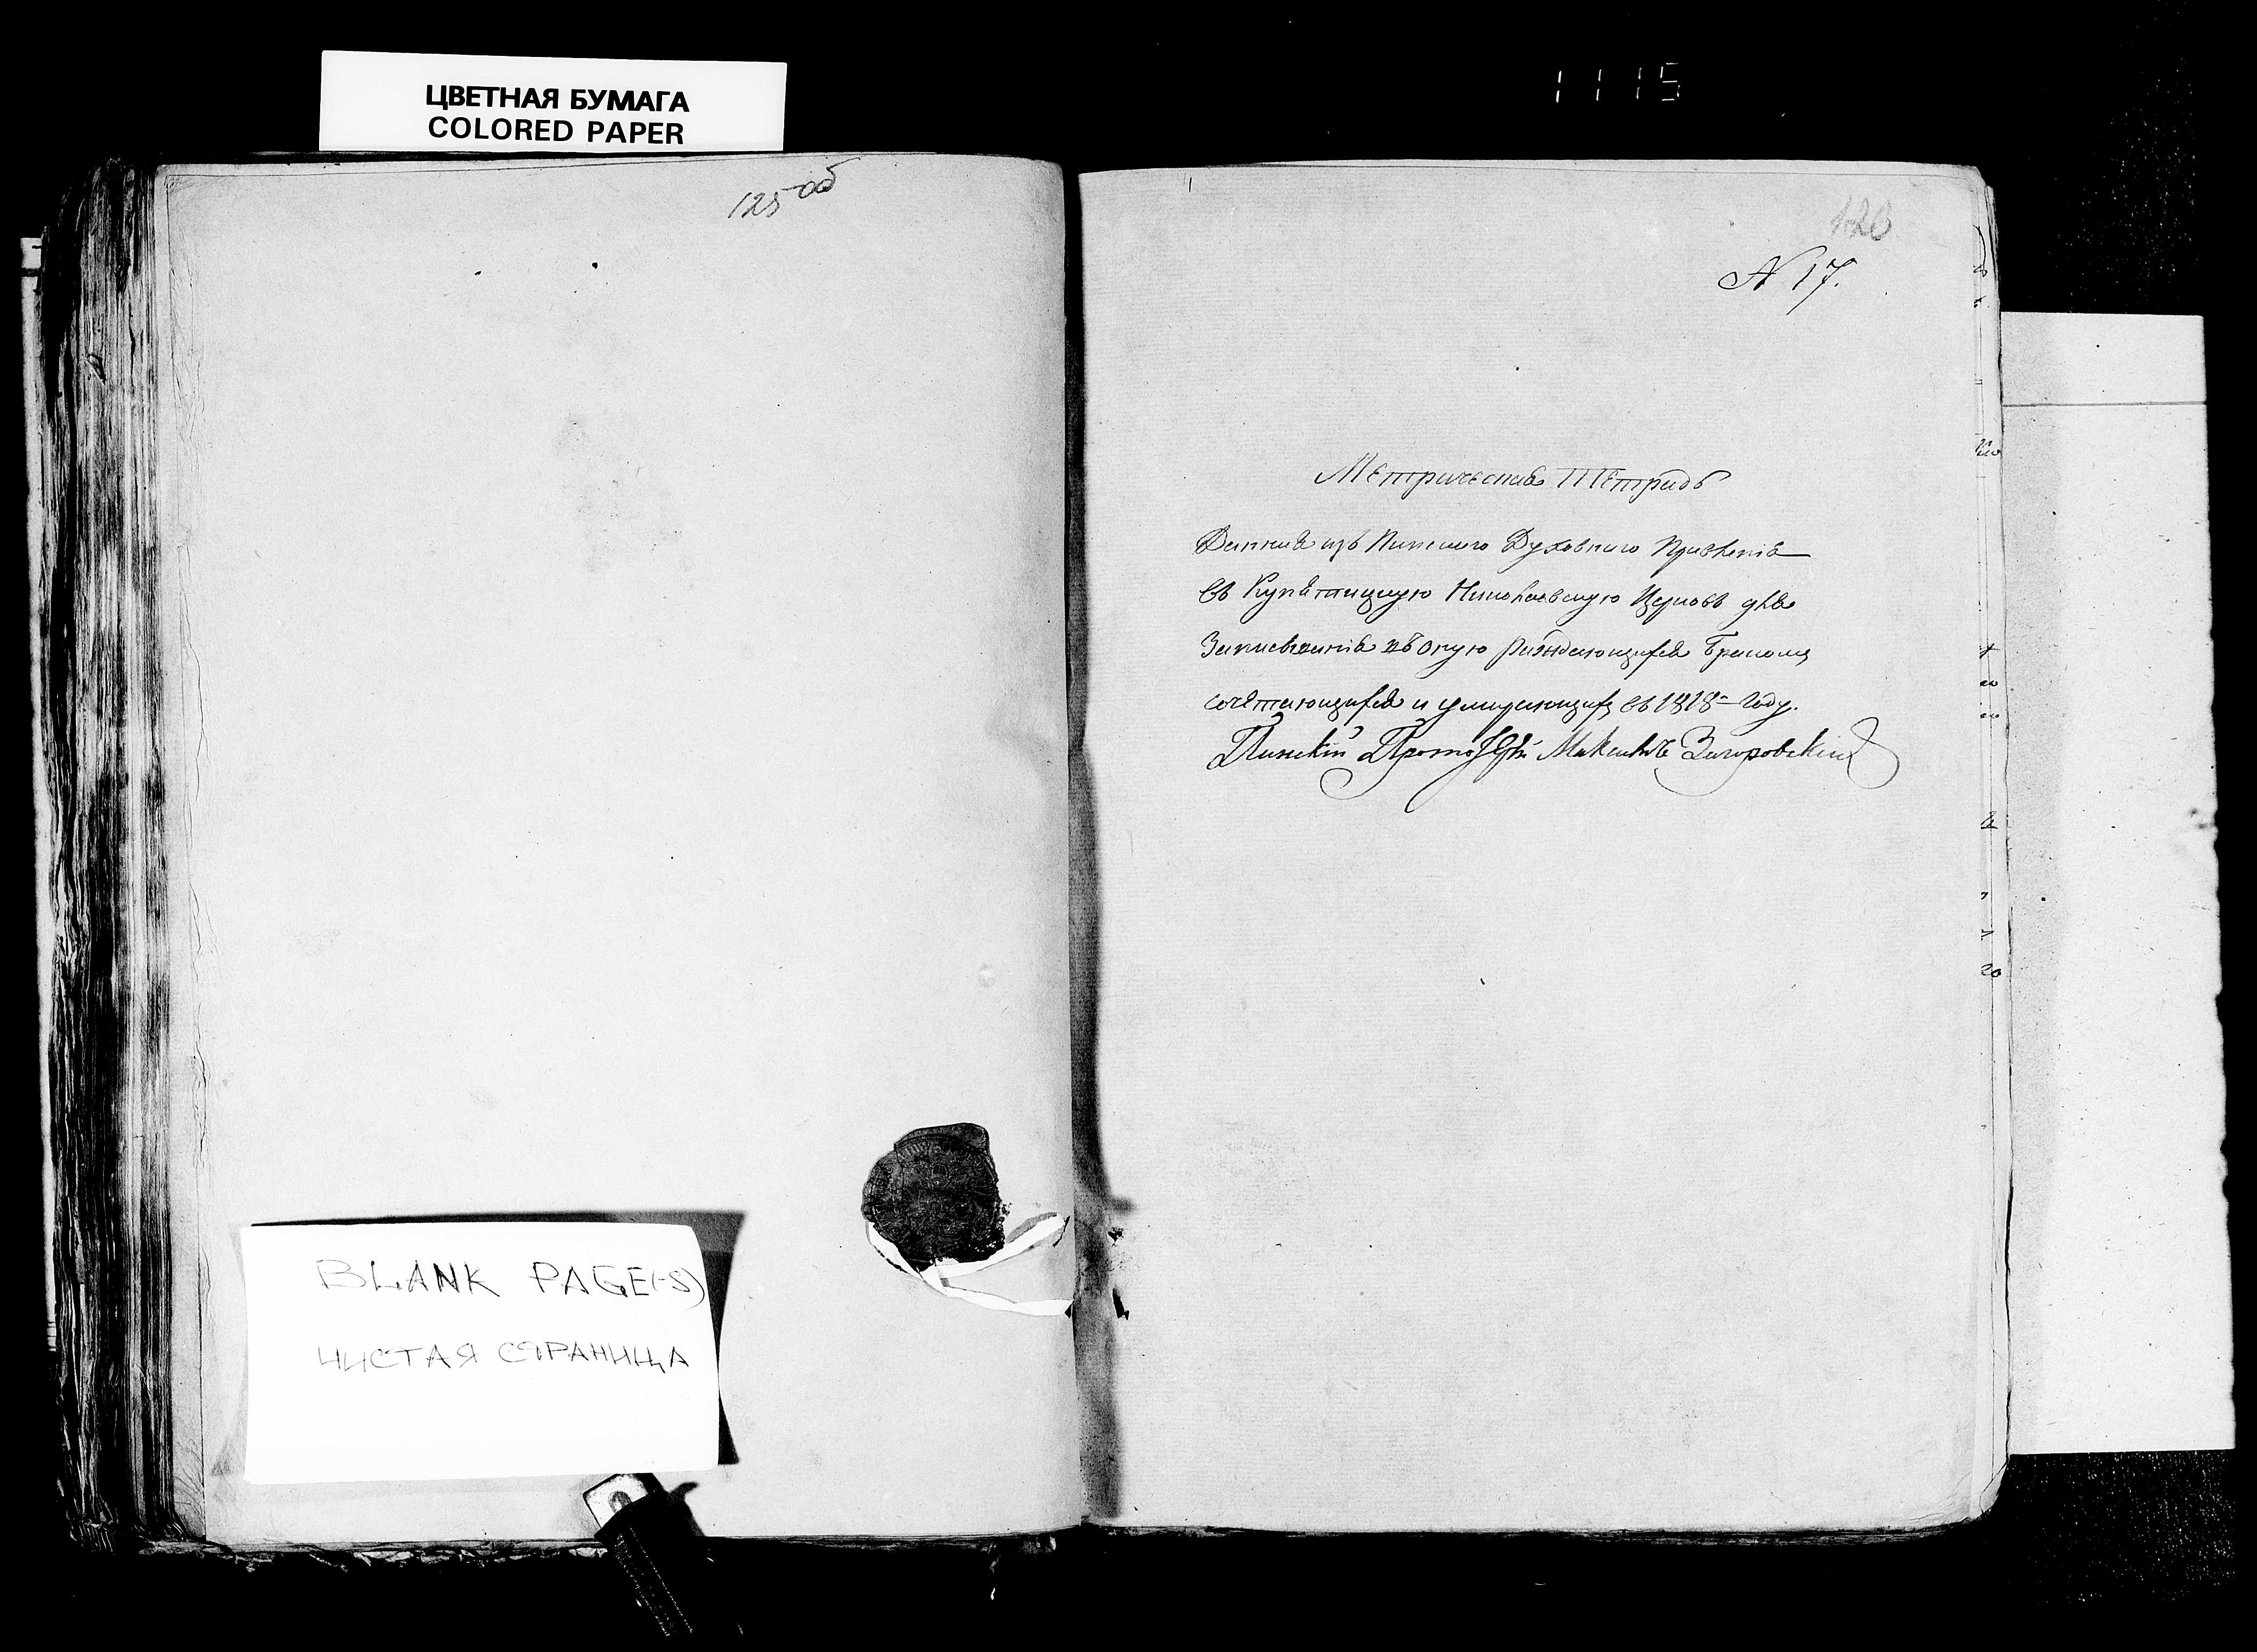 ЦВЕТНАЯ БУМАГА
COLORED PAPER
1115
125 об
126
N 17.
Метрическая Тетрадь
Данная изъ Пинскаго Духовного Правленія
въ Купятицкую Николаевскую Церковь для
Записыванія въ оную раждающихся Бракомъ
сочетающихся и умирающихъ въ 1818 году.
Пинскій Протоіерей Максимъ Загоровскій
BLANK PAGE(-S)
ЧИСТАЯ СТРАНИЦА